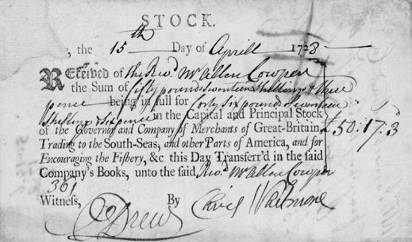 STOCK.
, the 15th Day of Aprill 1728
Received of the Revd. Mr. Allen Cowper
the Sum of fifty pounds Seventeen Shillings & three
pence being in full for Forty Six pounds Seventeen
Shillings & Six pence in the Capital and Principal Stock
of the Governor and Company of Merchants of Great-Britain £50:17:3
Trading to the South-Seas, and other Parts of America, and for
Encouraging the Fishery, &c this Day Transferr'd in the said
Company's Books, unto the said Revd. Mr. Allen Cowper
361
Witness, By
Drew